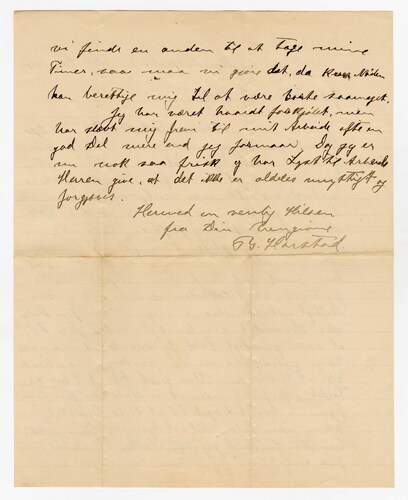 vi finde en anden til at tage mine
Timer, saa maa vi gjøre det, da kun Nøden
kan berettige mig til at være borte saameget.
Jeg har været haardt forkjølet, men
har slæbt mig frem til mit Arbeide ofte en
god Del mere end jeg formaar. Dog jeg er
nu nok saa frisk og har Lyst til Arbeide
Herren give, at det ikke er aldeles unyttigt og
forgjæves.
Hermed en venlig Hilsen
fra Din hengivne
B. Harstad.